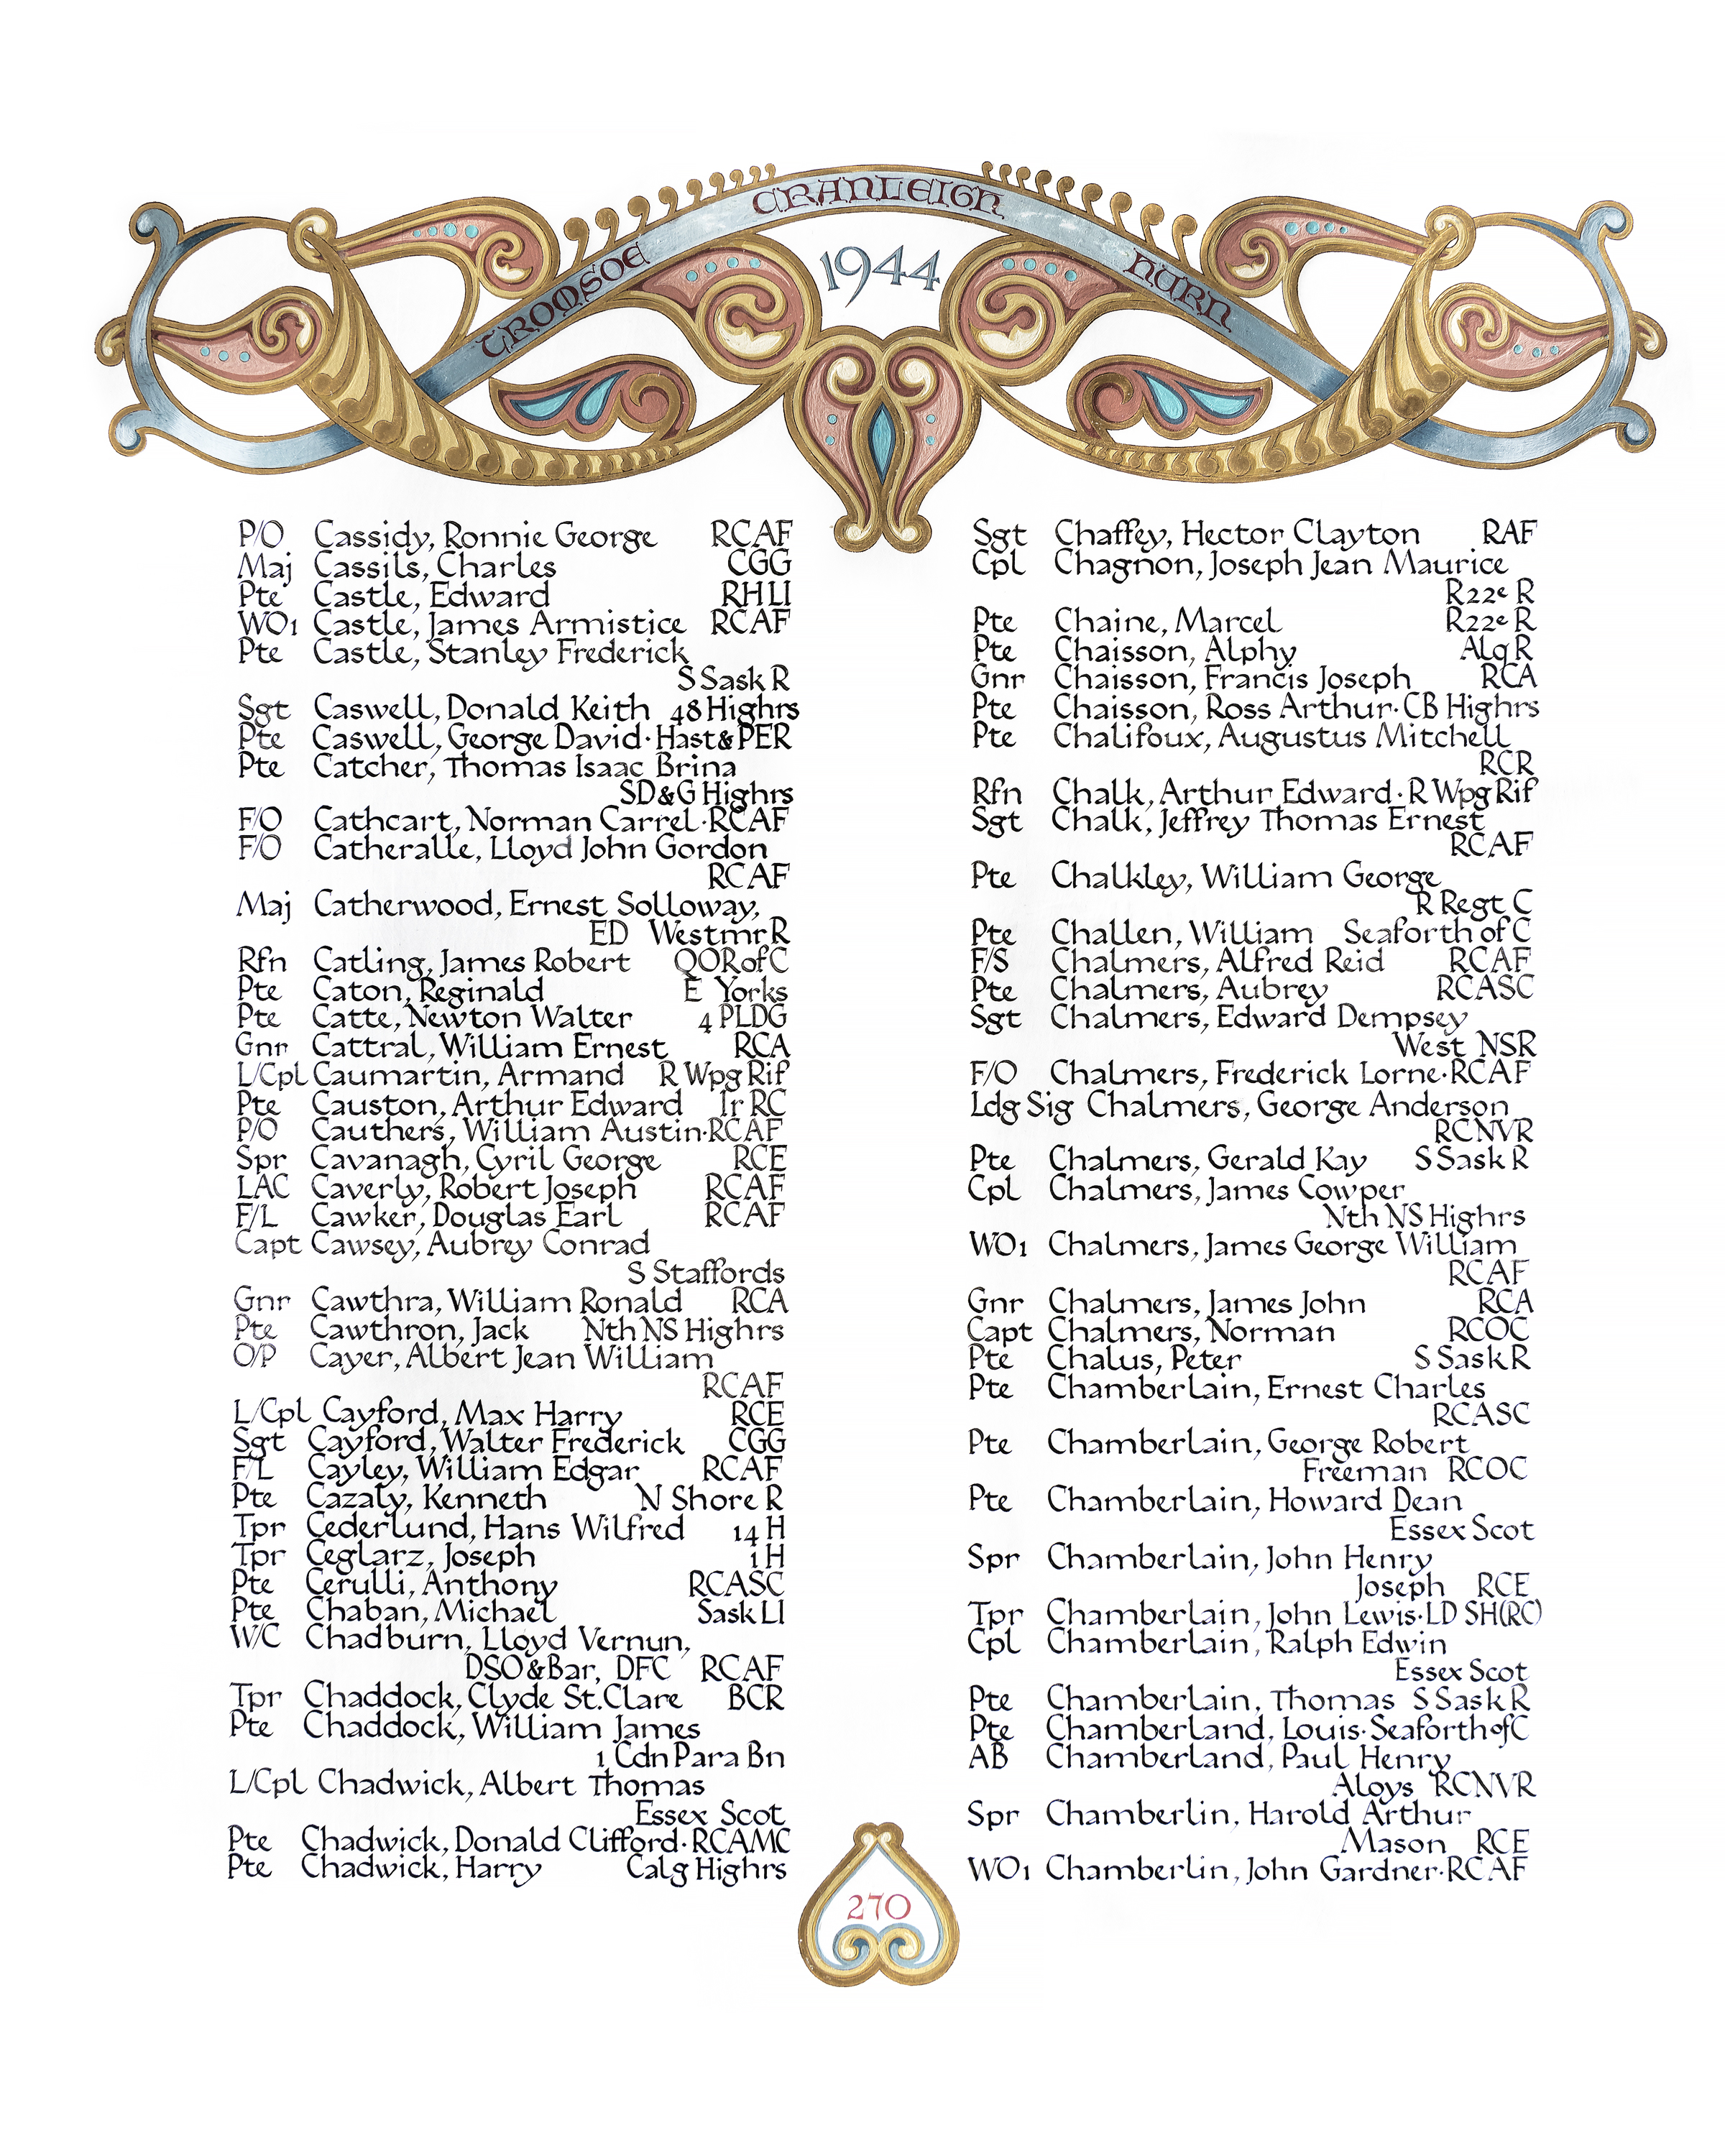 TROMSOE CRANLEIGH HURN
1944
P/O Cassidy, Ronnie George RCAF
Maj Cassils, Charles CGG
Pte Castle, Edward RHLI
WO1 Castle, James Armistice RCAF
Pte Castle, Stanley Frederick
S Sask R
Sgt Caswell, Donald Keith 48 Highrs
Pte Caswell, George David·Hast&PER
Pte Catcher, Thomas Isaac Brina
SD&G Highrs
F/O Cathcart, Norman Carrel·RCAF
F/O Catheralle, Lloyd John Gordon
RCAF
Maj Catherwood, Ernest Solloway,
ED Westmr R
Rfn Catling, James Robert QOR of C
Pte Caton, Reginald E Yorks
Pte Catte, Newton Walter 4 PLDG
Gnr Cattral, William Ernest RCA
L/Cpl Caumartin, Armand R Wpg Rif
Pte Causton, Arthur Edward Ir RC
P/O Cauthers, William Austin·RCAF
Spr Cavanagh, Cyril George RCE
LAC Caverly, Robert Joseph RCAF
F/L Cawker, Douglas Earl RCAF
Capt Cawsey, Aubrey Conrad
S Staffords
Gnr Cawthra, William Ronald RCA
Pte Cawthron, Jack Nth NS Highrs
O/P Cayer, Albert Jean William
RCAF
L/Cpl Cayford, Max Harry RCE
Sgt Cayford, Walter Frederick CGG
F/L Cayley, William Edgar RCAF
Pte Cazaly, Kenneth N Shore R
Tpr Cederlund, Hans Wilfred 14 H
Tpr Ceglarz, Joseph 1 H
Pte Cerulli, Anthony RCASC
Pte Chaban, Michael Sask LI
W/C Chadburn, Lloyd Vernun,
DSO&Bar, DFC RCAF
Tpr Chaddock, Clyde St. Clare BCR
Pte Chaddock, William James
1 Cdn Para Bn
L/Cpl Chadwick, Albert Thomas
Essex Scot
Pte Chadwick, Donald Clifford·RCAMC
Pte Chadwick, Harry Calg Highrs
Sgt Chaffey, Hector Clayton RAF
Cpl Chagnon, Joseph Jean Maurice
R22e R
Pte Chaine, Marcel R22e R
Pte Chaisson, Alphy Alq R
Gnr Chaisson, Francis Joseph RCA
Pte Chaisson, Ross Arthur·CB Highrs
Pte Chalifoux, Augustus Mitchell
RCR
Rfn Chalk, Arthur Edward·R Wpg Rif
Sgt Chalk, Jeffrey Thomas Ernest
RCAF
Pte Chalkley, William George
R Regt C
Pte Challen, William Seaforth of C
F/S Chalmers, Alfred Reid RCAF
Pte Chalmers, Aubrey RCASC
Sgt Chalmers, Edward Dempsey
West NSR
F/O Chalmers, Frederick Lorne·RCAF
Ldg Sig Chalmers, George Anderson
RCNVR
Pte Chalmers, Gerald Kay S Sask R
Cpl Chalmers, James Cowper
Nth NS Highrs
WO1 Chalmers, James George William
RCAF
Gnr Chalmers, James John RCA
Capt Chalmers, Norman RCOC
Pte Chalus, Peter S Sask R
Pte Chamberlain, Ernest Charles
RCASC
Pte Chamberlain, George Robert
Freeman RCOC
Pte Chamberlain, Howard Dean
Essex Scot
Spr Chamberlain, John Henry
Joseph RCE
Tpr Chamberlain, John Lewis·LD SH(RC)
Cpl Chamberlain, Ralph Edwin
Essex Scot
Pte Chamberlain, Thomas S Sask R
Pte Chamberland, Louis·Seaforth of C
AB Chamberland, Paul Henry
Aloys RCNVR
Spr Chamberlin, Harold Arthur
Mason RCE
WO1 Chamberlin, John Gardner·RCAF
270